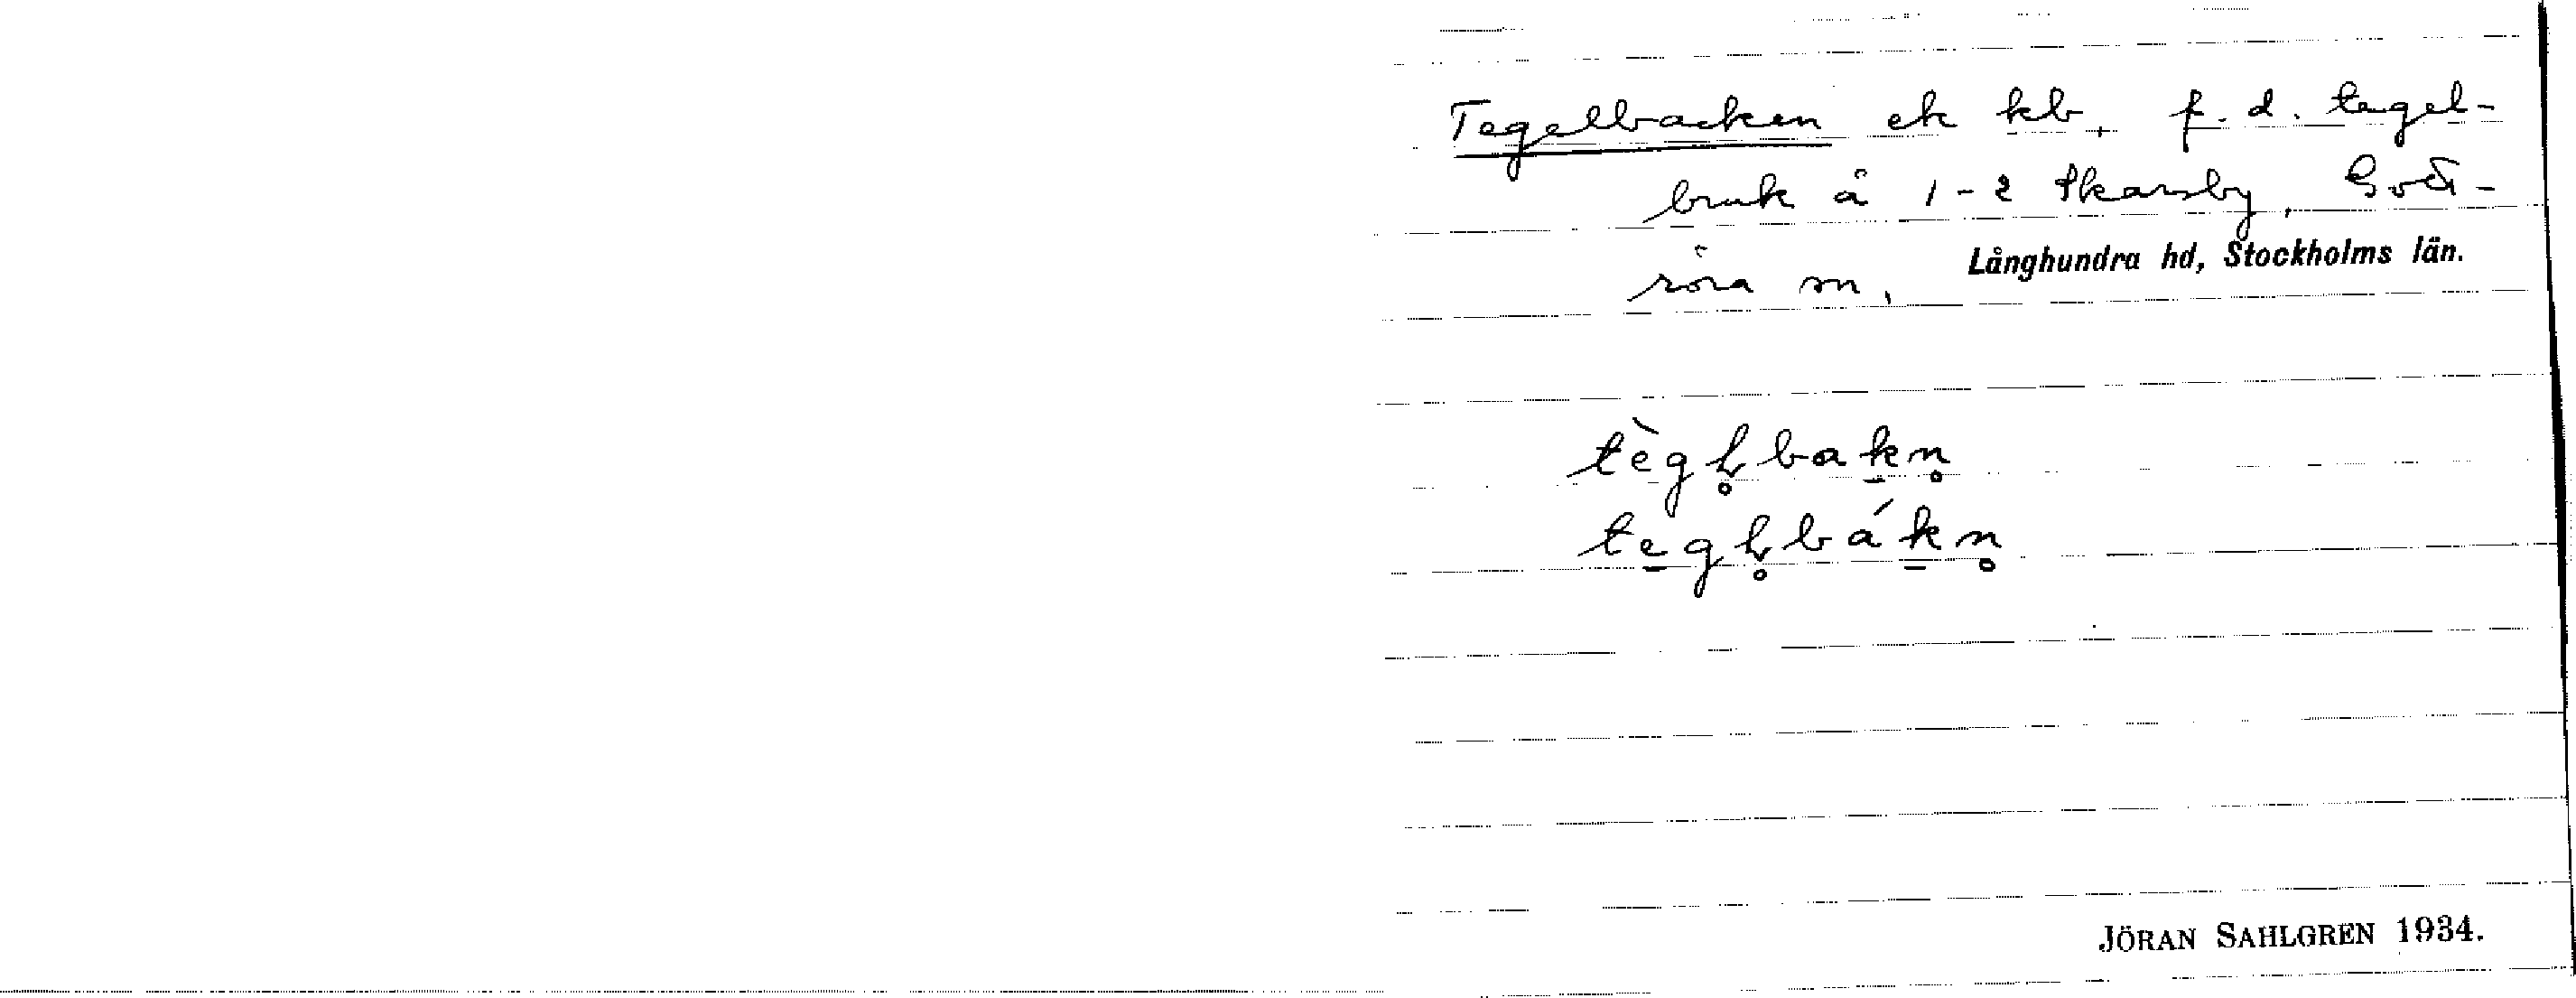 Tegelbacken ek kb, f.d. tegel-
bruk å 1-2 Skarsby, Gott-
röra sn, Långhundra hd, Stockholms län.
tègl̥bakn̥
teglbákn̥
JÖRAN SAHLGREN 1934.